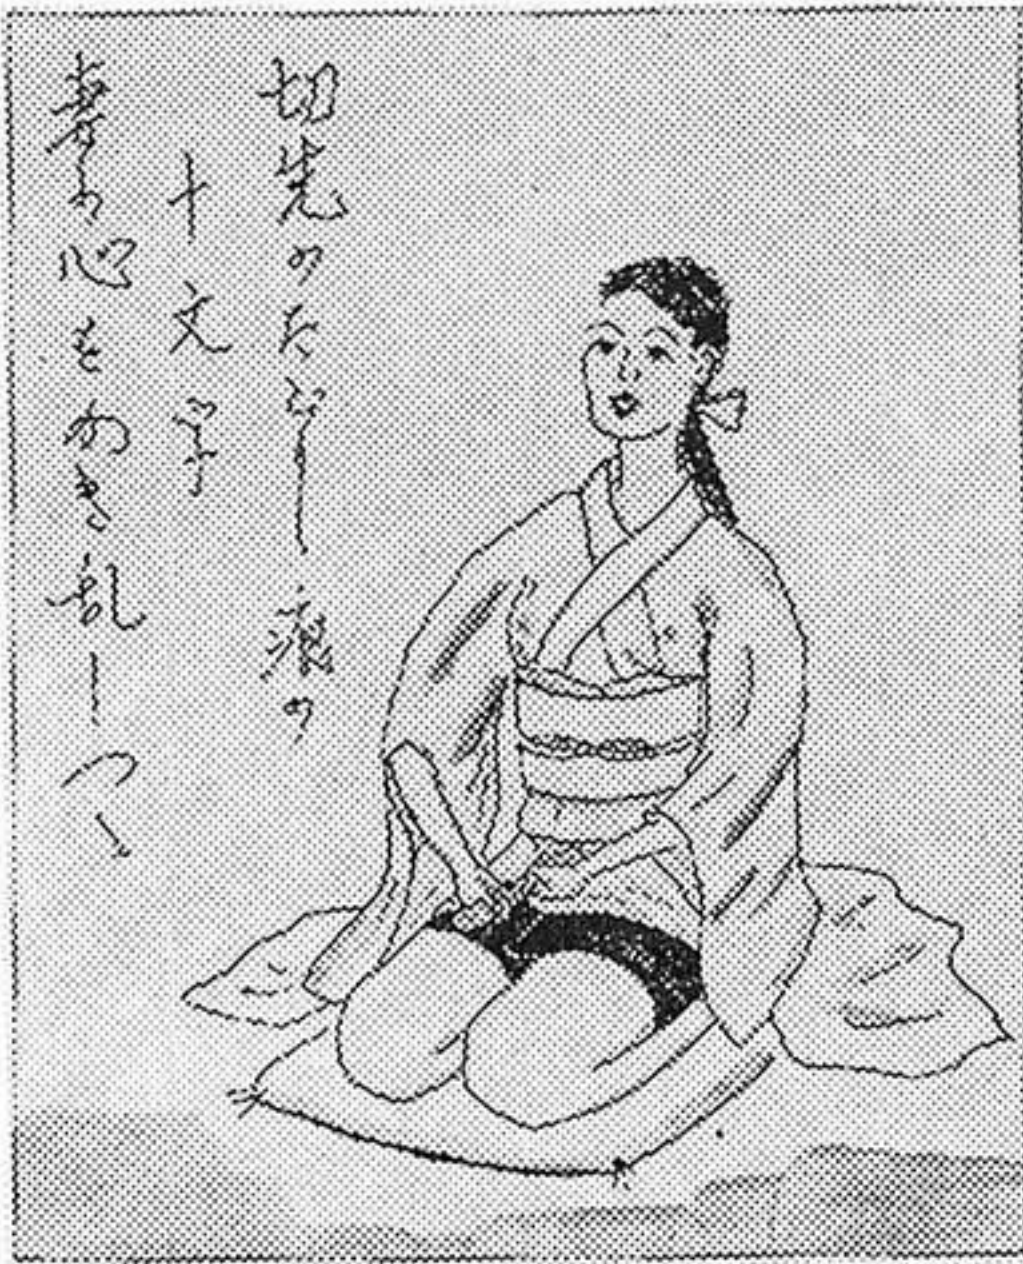 切先のたどりし痕の
十文字
妻の心をかき乱しつゝ